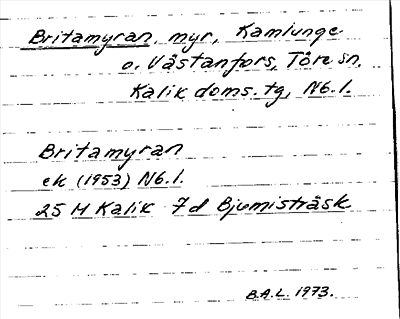 Britamyran, myr, Kamlunge
o. Västanfors, Töre sn,
Kalix doms. tg, Nb.l.
Britamyran
ek (1953) Nb.l.
25 M Kalix 7d Bjumisträsk
B.A.L. 1973.